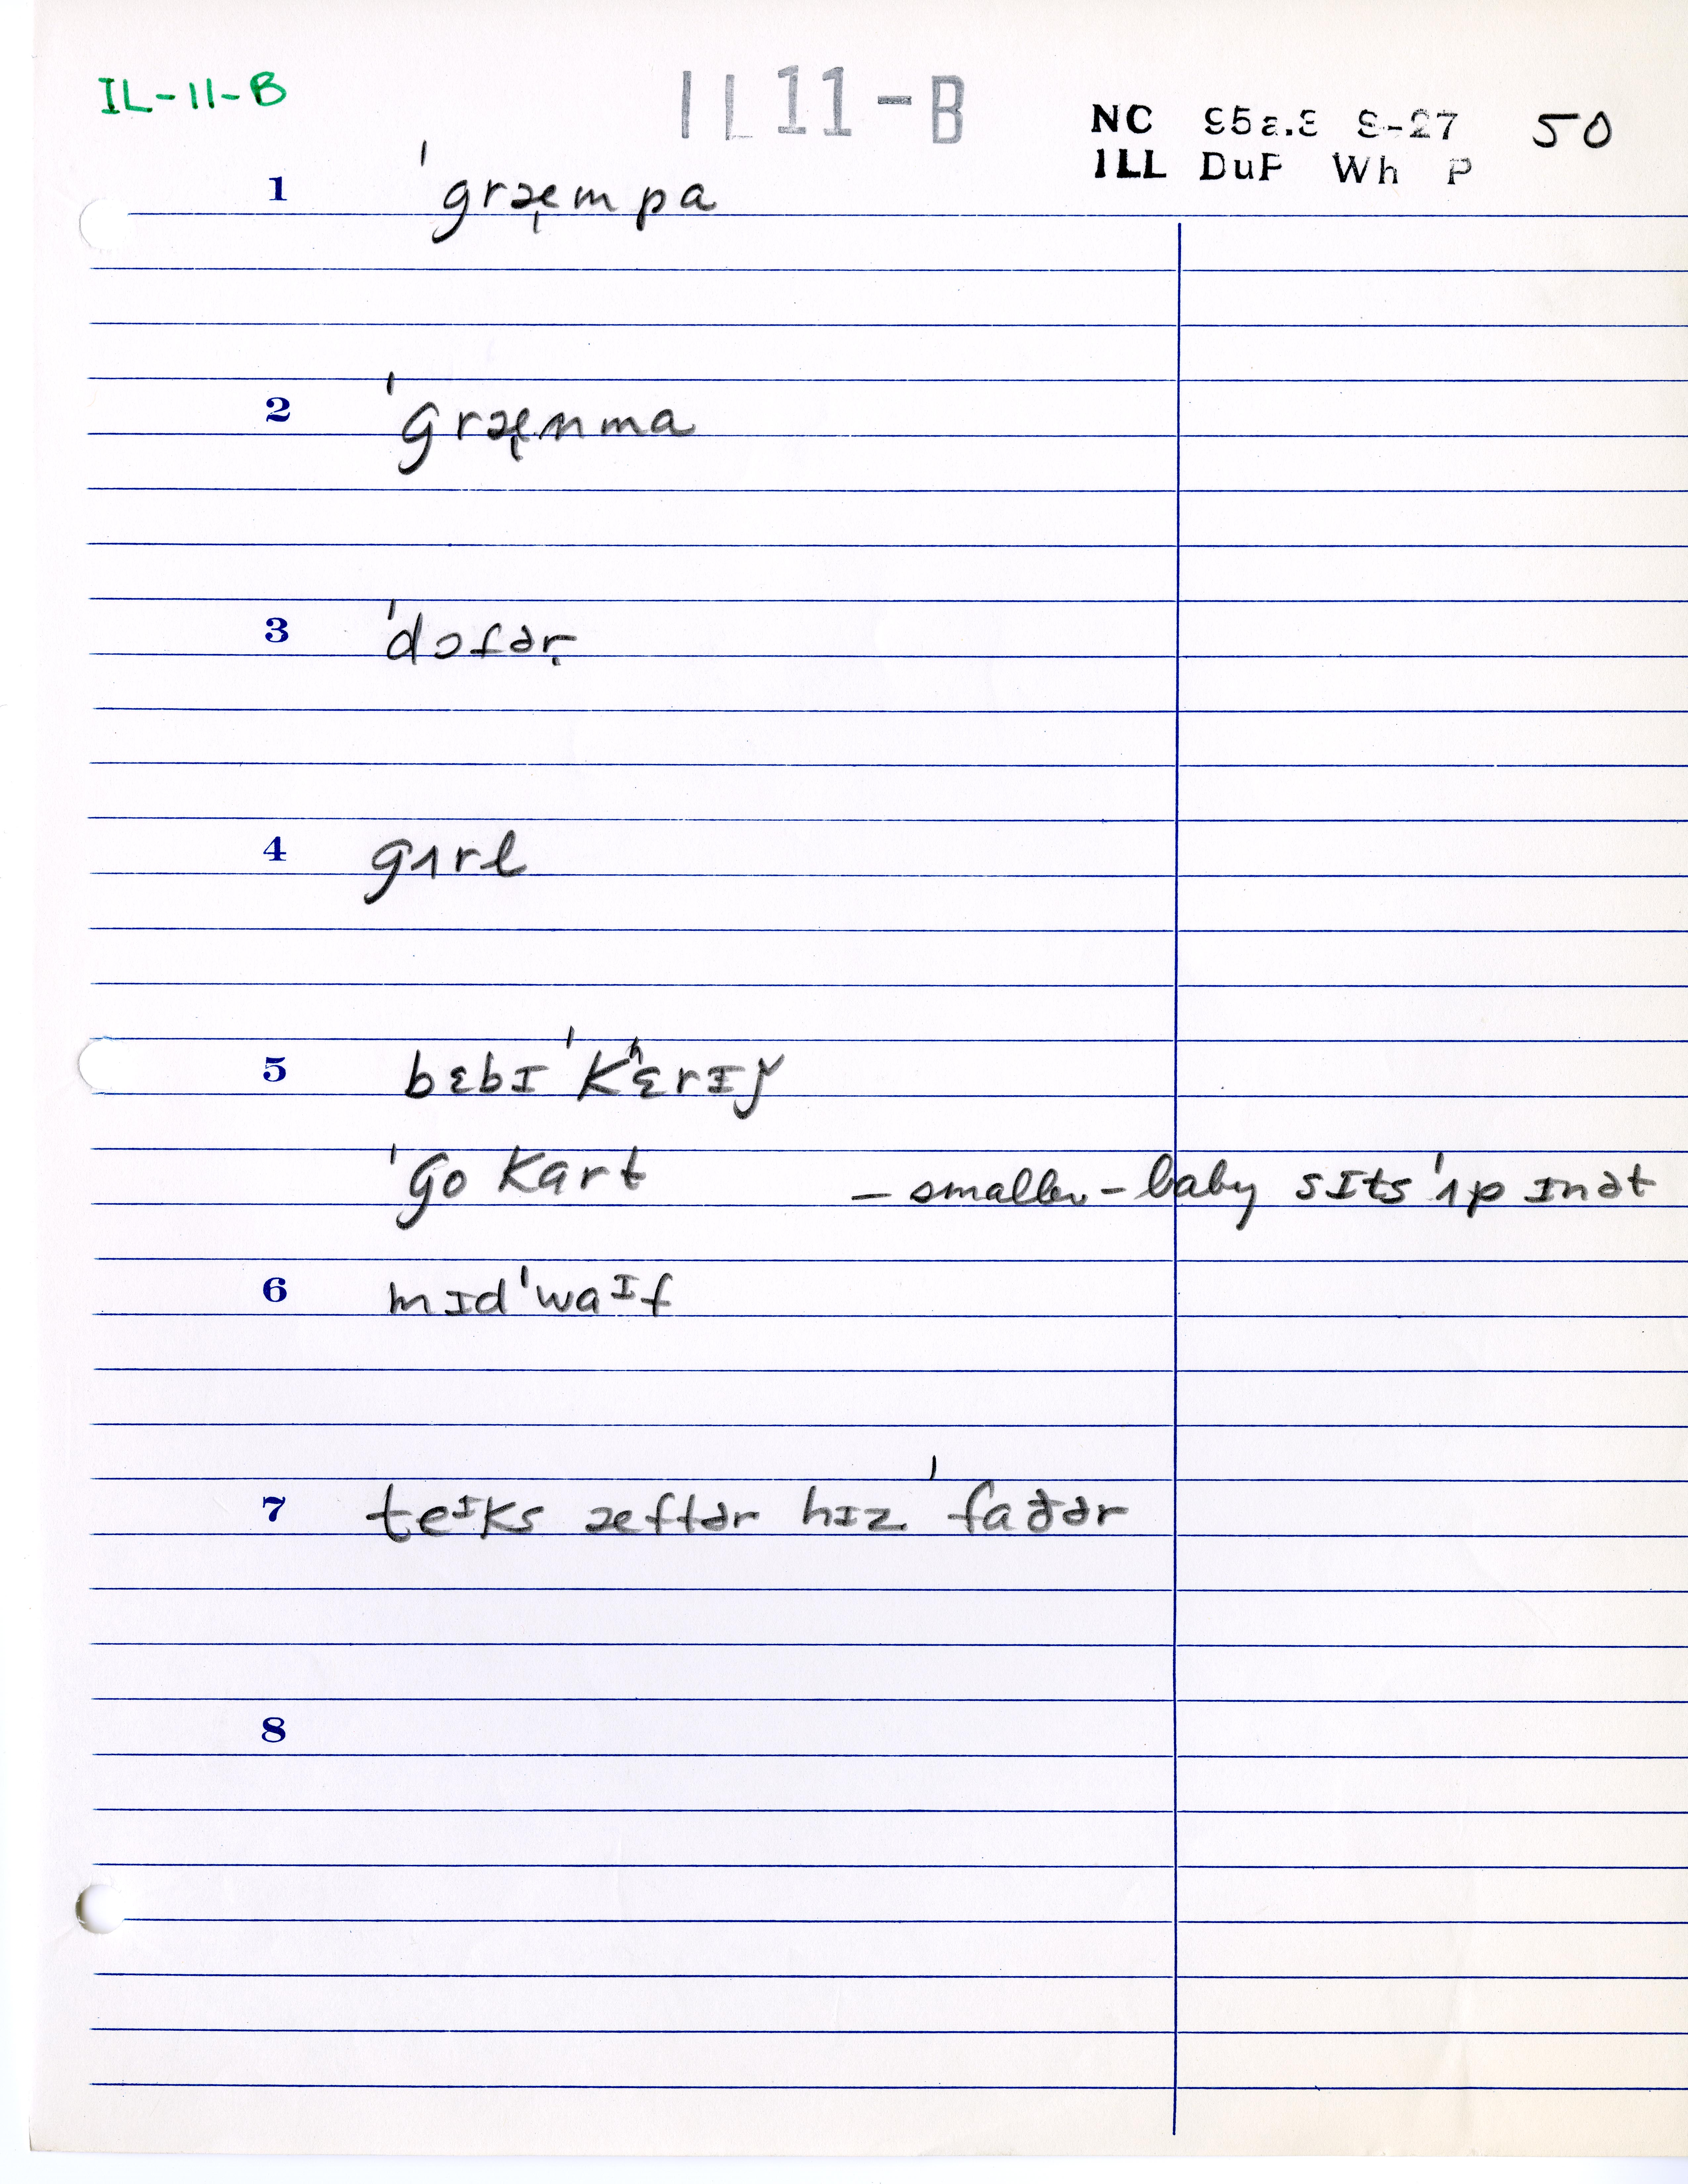 IL-11-B
IL11-B
NC 95a.3 S-27 50
ILL DuP Wh P
1 ˈgræ̩mpa
2 ˈgræ̩nma
3 ˈdɔfər̩
4 gɪrl
5 bɛbɪ ˈkʰɛrɪǰ
ˈgo kart – smaller – baby sɪts ˈʌp ɪnət
6 mɪdˈwaᶦf
7 teᶦks æftər hɪz ˈfaðər
8